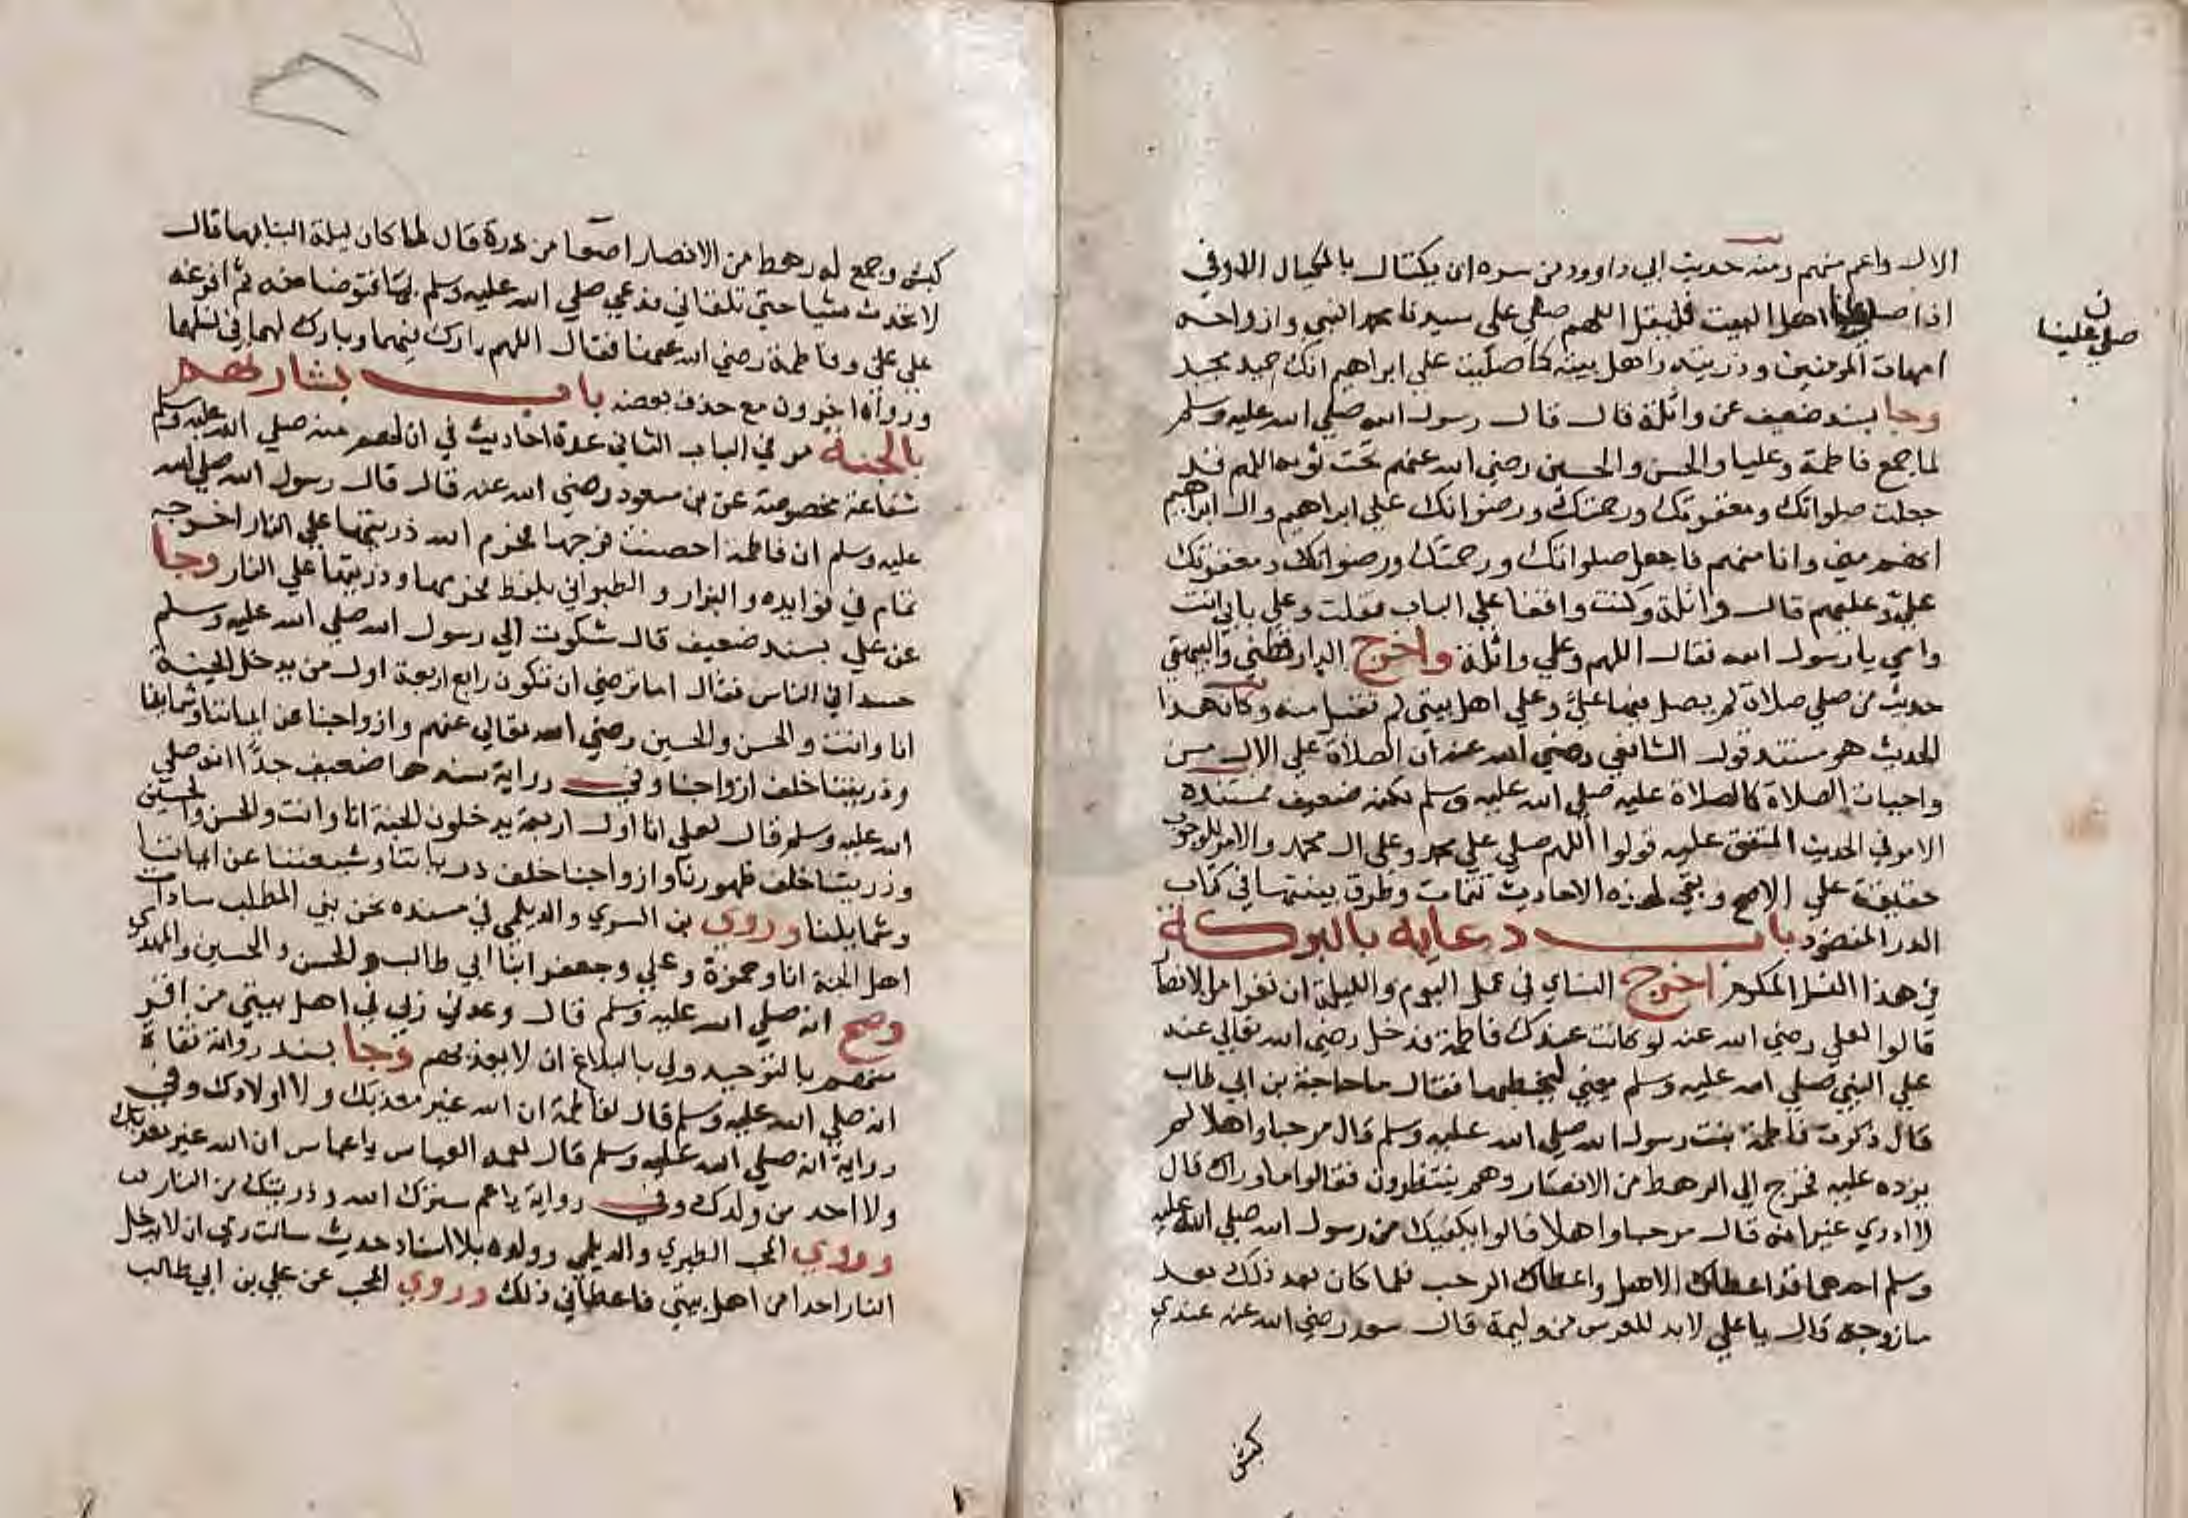 الال واعم منهم ومنه حديث ابي داوود من سره ان يكتال بالمكيال الاوفي
اذا صلي علينا اهل البيت فليقل اللهم صلي علي سيدنا محمد النبي وازواجه
امهات المومنين وذريته واهل بيته كما صليت علي ابراهيم انك حميد مجيد
وجا بسند ضعيف عن واثلة قال قال رسول الله صلي الله عليه وسلم
لما جمع فاطمة وعليا والحسن والحسين رضي الله عنهم تحت ثوبه اللهم قد
جعلت صلواتك ومغفرتك ورحمتك ورضوانك علي ابراهيم وال ابراهيم
انهم مني وانا منهم فاجعل صلواتك ورحمتك ورضوانك ومغفرتك
علي وعليهم قال واثلة وكنت واقفا علي الباب فقلت وعلي بابي انت
وامي يا رسول الله فقال اللهم وعلي واثلة واخرج الدارقطني والبيهقي
حديث من صلي صلاة لم يصل فيها علي وعلي اهل بيتي لم تقبل منه وكان هذا
الحديث هو مستند قول الشافعي رضي الله عنه ان الصلاة علي الال من
واجبات الصلاة كالصلاة عليه صلي الله عليه وسلم لكنه ضعيف مستنده
الامر في الحديث المتفق عليه قولوا اللهم صلي علي محمد وعلي ال محمد والامر للوجوب
حقيقة علي الاصح وبقي لهذه الاحاديث تتمات وطرق بينتها في كتاب
الدر المنضود باب دعايه بالبركة
في هذا النسل المكرم اخرج النساي في عمل اليوم والليلة ان نفرا من الانصار
قالوا لعلي رضي الله عنه لو كانت عندك فاطمة فدخل رضي الله تعالي عنه
علي النبي صلي الله عليه وسلم يعني ليخطبها فقال ما حاجة بن ابي طالب
قال ذكرت فاطمة بنت رسول الله صلي الله عليه وسلم قال مرحبا واهلا لم
يزده عليه فخرج الي الرهط من الانصار وهم ينتظرون فقالوا ما وراك قال
لا ادري غير انه قال مرحبا واهلا قالوا يكفيك من رسول الله صلي الله عليه
وسلم احدهما قد اعطاك الاهل واعطاك الرحب فلما كان بعد ذلك بعد
ما زوجه قال يا علي لا بد للعرس من وليمة قال سعد رضي الله عنه عندي
كبش
ن
صلي علينا
كبش وجمع له رهط من الانصار اصعا من ذرة قال لما كان ليلة البنا بها قال
لا تحدث شيا حتي تلقاني فدعي صلي الله عليه وسلم بما فتوضا منه ثم افرغه
علي علي وفاطمة رضي الله عنهما فقال اللهم بارك فيهما وبارك لهما في نسلهما
ورواه اخرون مع حذف بعضه باب بشارتهم
بالجنة مر في الباب الثاني عدة احاديث في ان لهم منه صلي الله عليه وسلم
شفاعة مخصوصة عن بن مسعود رضي الله عنه قال قال رسول الله صلي الله
عليه وسلم ان فاطمة احصنت فرجها فحرم الله ذريتها علي النار اخرجه
تمام في فوايده والبزار والطبراني بلفظ فحرمها وذريتها علي النار وجا
عن علي بسند ضعيف قال شكوت الي رسول الله صلي الله عليه وسلم
حسدا في الناس فقال اما ترضي ان تكون رابع اربعة اول من يدخل الجنة
انا وانت والحسن والحسين رضي الله تعالي عنهم وازواجنا عن ايماننا وشمايلنا
وذريتنا خلف ازواجنا وفي رواية سندها ضعيف جدا انه صلي
الله عليه وسلم قال لعلي انا اول اربعة يدخلون الجنة انا وانت والحسن والحسين
وذريتنا خلف ظهورنا وازواجنا خلف ذرياتنا وشيعتنا عن ايماننا
وشمايلنا وروي بن السري والديلمي في مسنده نحن بني المطلب سادات
اهل الجنة انا وحمزة وعلي وجعفر ابنا ابي طالب والحسن والحسين والمهدي
وصح انه صلي الله عليه وسلم قال وعدني ربي في اهل بيتي من اقر
منهم بالتوحيد ولي بالبلاغ ان لا يعذبهم وجا بسند رواته ثقاة
انه صلي الله عليه وسلم قال لفاطمة ان الله غير معذبك ولا اولادك وفي
رواية انه صلي الله عليه وسلم قال لعمه العباس يا عباس ان الله غير معذبك
ولا احد من ولدك وفي رواية يا عم سترك الله وذريتك من النار
وروي المحب الطبري والديلمي وولده بلا اسناد حديث سالت ربي ان لا يدخل
النار احدا من اهل بيتي فاعطاني ذلك وروي المحب عن علي بن ابي طالب